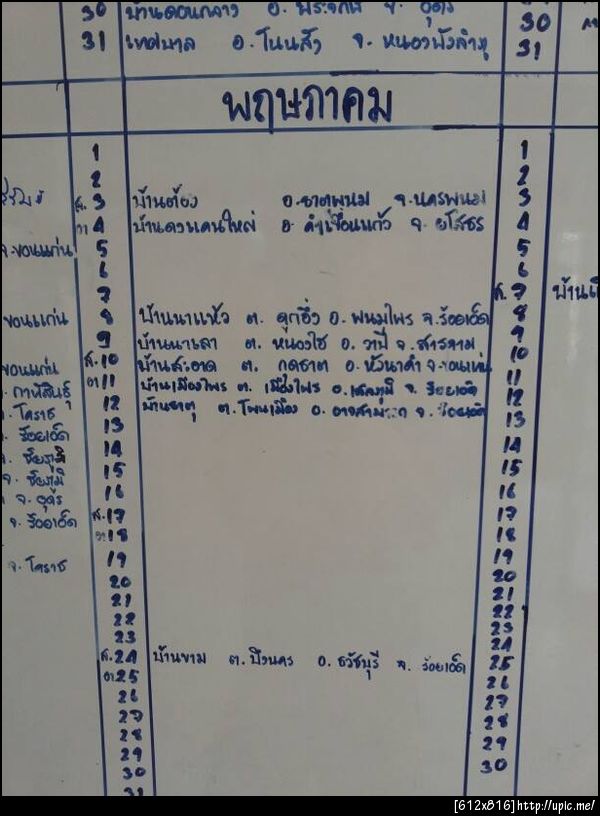 30 บ้านดอนกลาง อ. จ. อุดร 30
31 เทศบาล อ. โนนสัง จ. หนองบัวลำภู 31
พฤษภาคม
1 1
2 2
ส. 3 บ้านต้อง อ.ธาตุพนม จ.นครพนม 3
อา 4 บ้านดงแคนใหญ่ อ. คำเขื่อนแก้ว จ. ยโสธร 4
จ.ขอนแก่น 5 5
6 6
7 ส. 7
ขอนแก่น 8 บ้านนาแห้ว ต. กุดอึ่ง อ. พนมไพร จ.ร้อยเอ็ด 8
9 บ้านนาเลา ต. หนองไฮ อ. วาปี จ.สารคาม 9
ขอนแก่น ส.10 บ้านสะอาด ต. กุดธาตุ อ. จ.ขอนแก่น 10
จ. กาฬสินธุ์ อา11 บ้านเมืองไพร ต. เมืองไพร อ.เสลภูมิ จ. ร้อยเอ็ด 11
จ. โคราช 12 บ้านธาตุ ต. โพนเมือง อ. อาจสามารถ จ. ร้อยเอ็ด 12
จ. ร้อยเอ็ด 13 13
จ. ชัยภูมิ 14 14
จ. ชัยภูมิ 15 15
จ. อุดร 16 16
จ. ร้อยเอ็ด ส.17 17
อา18 18
จ. โคราช 19 19
20 20
21 21
22 22
23 23
ส.24 บ้านขาม ต. บึงนคร อ. ธวัชบุรี จ. ร้อยเอ็ด 24
อา25 25
26 26
27 27
28 28
29 29
30 30
31
[612x816]http://upic.me/